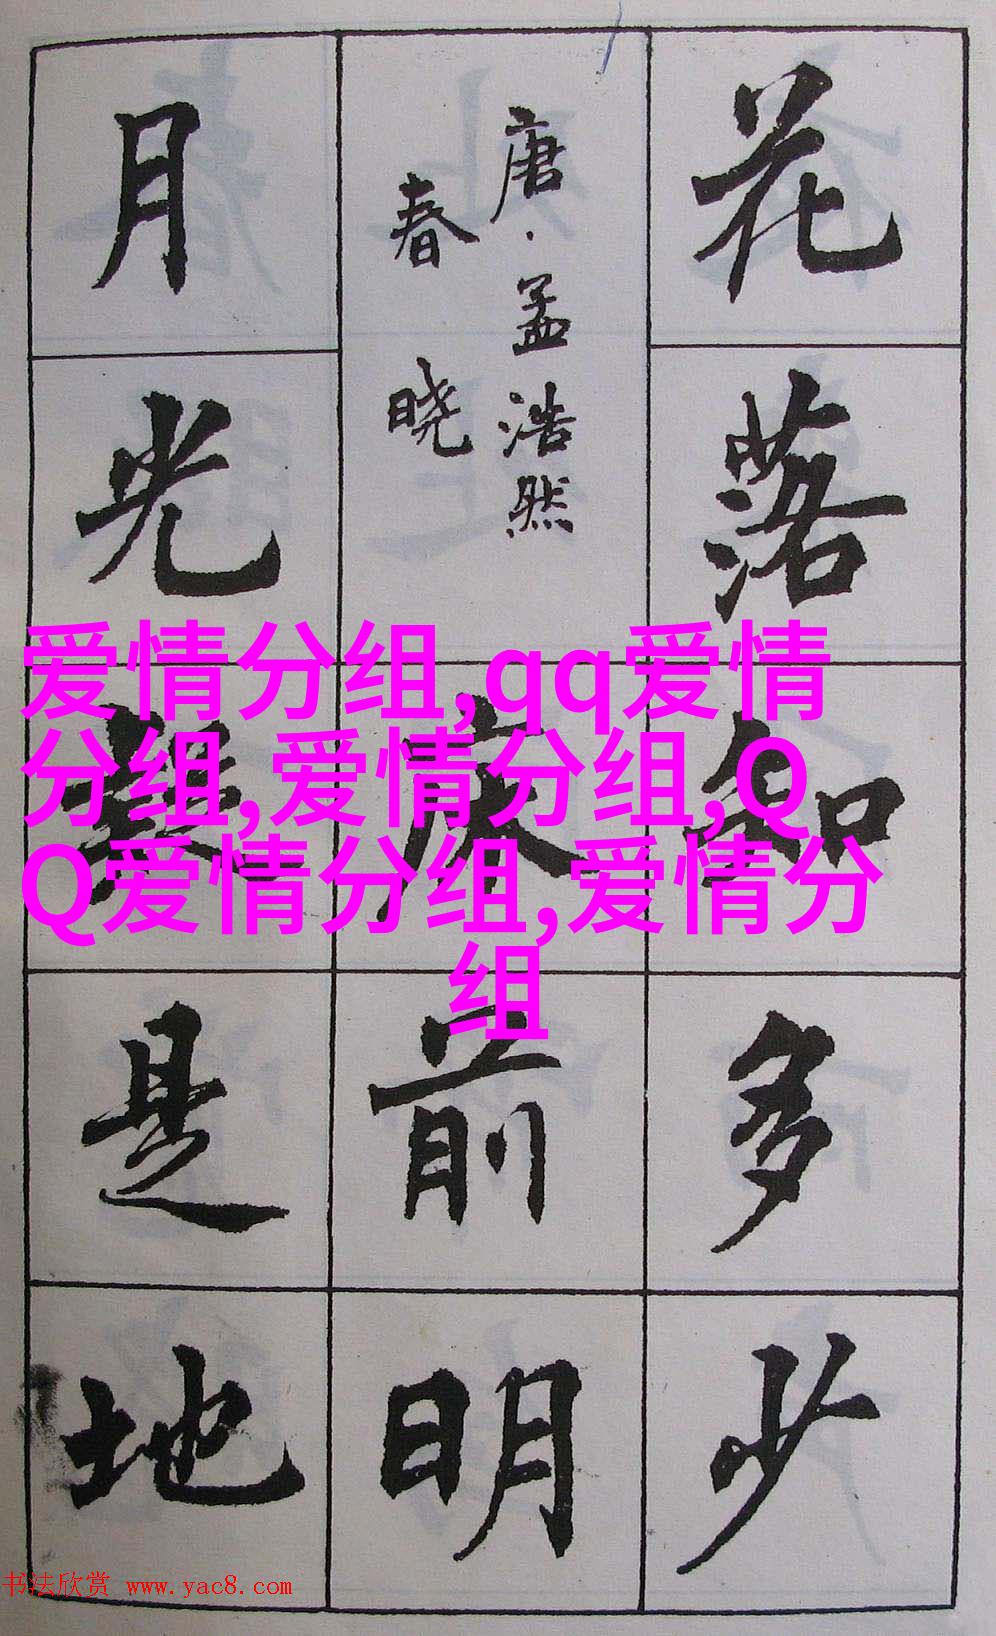 花落知多少
唐·孟浩然
春晓
床前明
月光疑是地
爱情分组,qq爱情
分组,爱情分组,Q
Q爱情分组,爱情分
组
书法欣赏 www.yac8.com